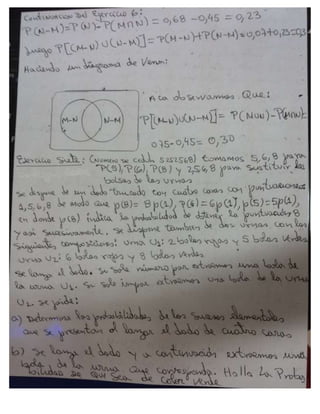 Continuación del Ejercicio 6:
P(N-M)=P(N)-P(M∩N) = 0,68 -0,45 = 0,23
Luego P[(M-N)∪(N-M)] = P(M-N)+P(N-M)=0,07+0,23=0,3
Haciendo un diagrama de Venn:
Aca observamos Que:
M-N N-M P[(M-N)∪(N-M)] = P(M∪N)-P(M∩N)=
0,75-0,45= 0,30
Ejercicio Siete: (Numero de Cedula 5252568) tomamos 5,6,8 para
P(5), P(6), P(8) y 2,5,6,8 para sustituir las
bolas de las urnas
Se dispone de un dado trucado con cuatro caras con puntuaciones
1,5,6,8 de modo que p(8)= 8p(1), p(6)=6p(1), p(5)=5p(1),
en donde p(8) indica la probabilidad de obtener la puntuación 8
y así sucesivamente. Se dispone tambien de dos urnas con las
siguientes composiciones: urna U1: 2 bolas rojas y 5 bolas verdes
urna U2: 6 bolas rojas y 8 bolas verdes
Se lanza el dado. Si sale número par extraemos una bola de
la urna U1. Si sale impar extraemos una bola de la urna
U2. Se pide:
a) Determina las probabilidades de los sucesos elementales
que se presentan al lanzar el dado de cuatro caras
b) Se lanza el dado y a continuación extraemos una
bola de la urna que corresponda. Halla la Proba
bilidad de que sea de color verde